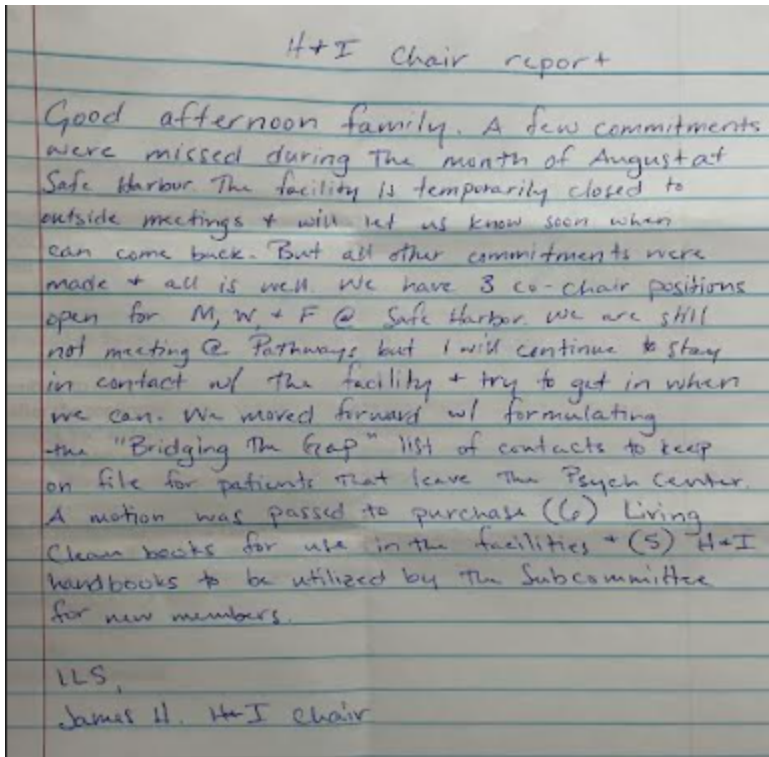 H+I Chair report
Good afternoon family. A few commitments
were missed during The month of August at
Safe Harbour. The facility is temporarily closed to
outside meetings + will let us know soon when
can come back. But all other commitments were
made + all is well. We have 3 co-chair positions
open for M, W, + F @ Safe Harbor. We are still
not meeting @ Pathways but I will continue to stay
in contact w/ The facility + try to get in when
we can. We moved forward w/ formulating
the "Bridging The Gap" list of contacts to keep
on file for patients That leave The Psych Center.
A motion was passed to purchase (6) Living
Clean books for use in the facilities + (5) H+I
handbooks to be utilized by The Subcommittee
for new members.
ILS,
James H. H+I Chair